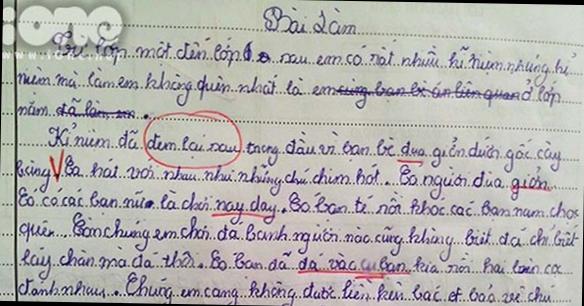 ione
Bài Làm
Từ lớp một đến lớp 6 sau em có rất nhiều kỉ niệm nhưng kỉ
niệm mà làm em không quên nhất là em cùng ban bè ở lớp
năm đã làm em.
Kỉ niệm đã đem lại sau trong đầu về bạn bè đua giởn dưới gốc cây
bàng Có hát với nhau như những chú chim hót. Có người đùa giởn
Có các bạn nữa là chơi nay day. Có bạn té rồi khóc các bạn nam chọc
quê. Còn chúng em chơi đá banh người nào cũng không biết đá chỉ biết
lấy chân mà đá thôi. Có bạn đã đá vào cu bạn kia rồi hai loàn cơ
đánh nhau. Chúng em can không được liền kêu bác đt bảo vệ chú